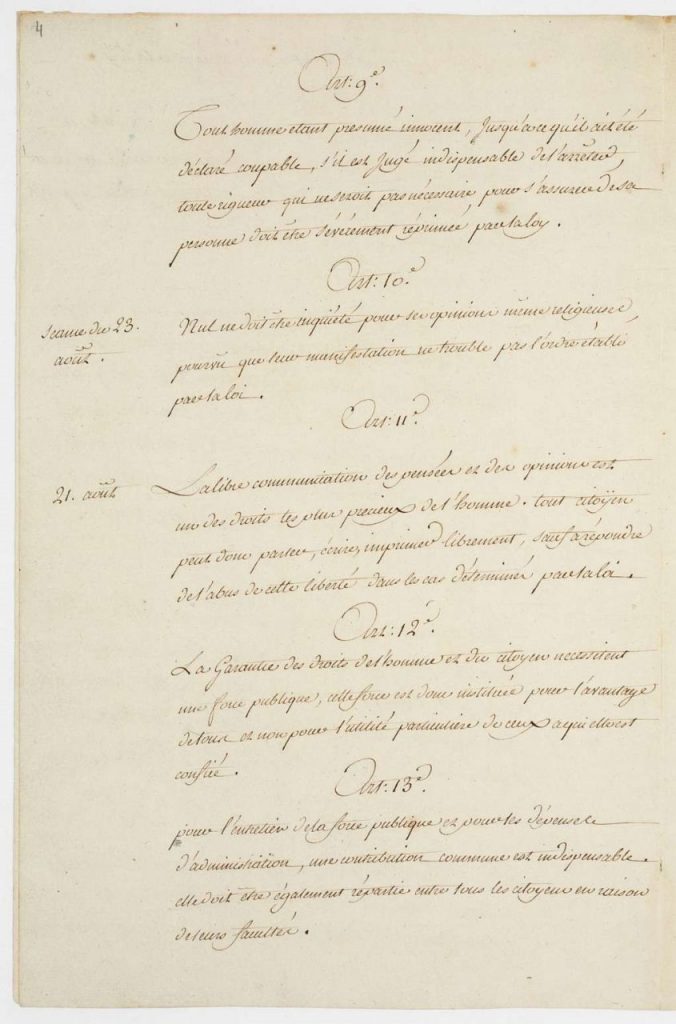 4
Art: 9e.
Tout homme etant presumé innocent, Jusqu'a ce qu'il ait été
déclaré coupable, s'il est Jugé indispensable de l'arrêter,
toute rigueur qui ne seroit pas nécessaire pour s'assurer de sa
personne doit être sévérement réprimée par la loy.
Art: 10e.
Seance du 23.
août.
Nul ne doit être inquiété pour ses opinions même religieuses
pourvû que leur manifestation ne trouble pas l'ordre établi
par la loi.
Art: 11e.
21. août
La libre communication des pensées et des opinions est
un des droits les plus precieux de l'homme. tout citoyen
peut donc parler, écrire, imprimer librement, sauf a répondre
de l'abus de cette liberté dans les cas déterminés par la loi.
Art: 12e.
La Garantie des droits de l'homme et du citoyen necessitent
une force publique, cette force est donc instituée pour l'avantage
de tous et non pour l'utilité particuliere de ceux a qui elle est
confiée.
Art: 13e.
pour l'entretien de la force publique et pour les dépenses
d'administration, une contribution commune est indispensable.
elle doit être également répartie entre tous les citoyens en raison
de leurs facultés.